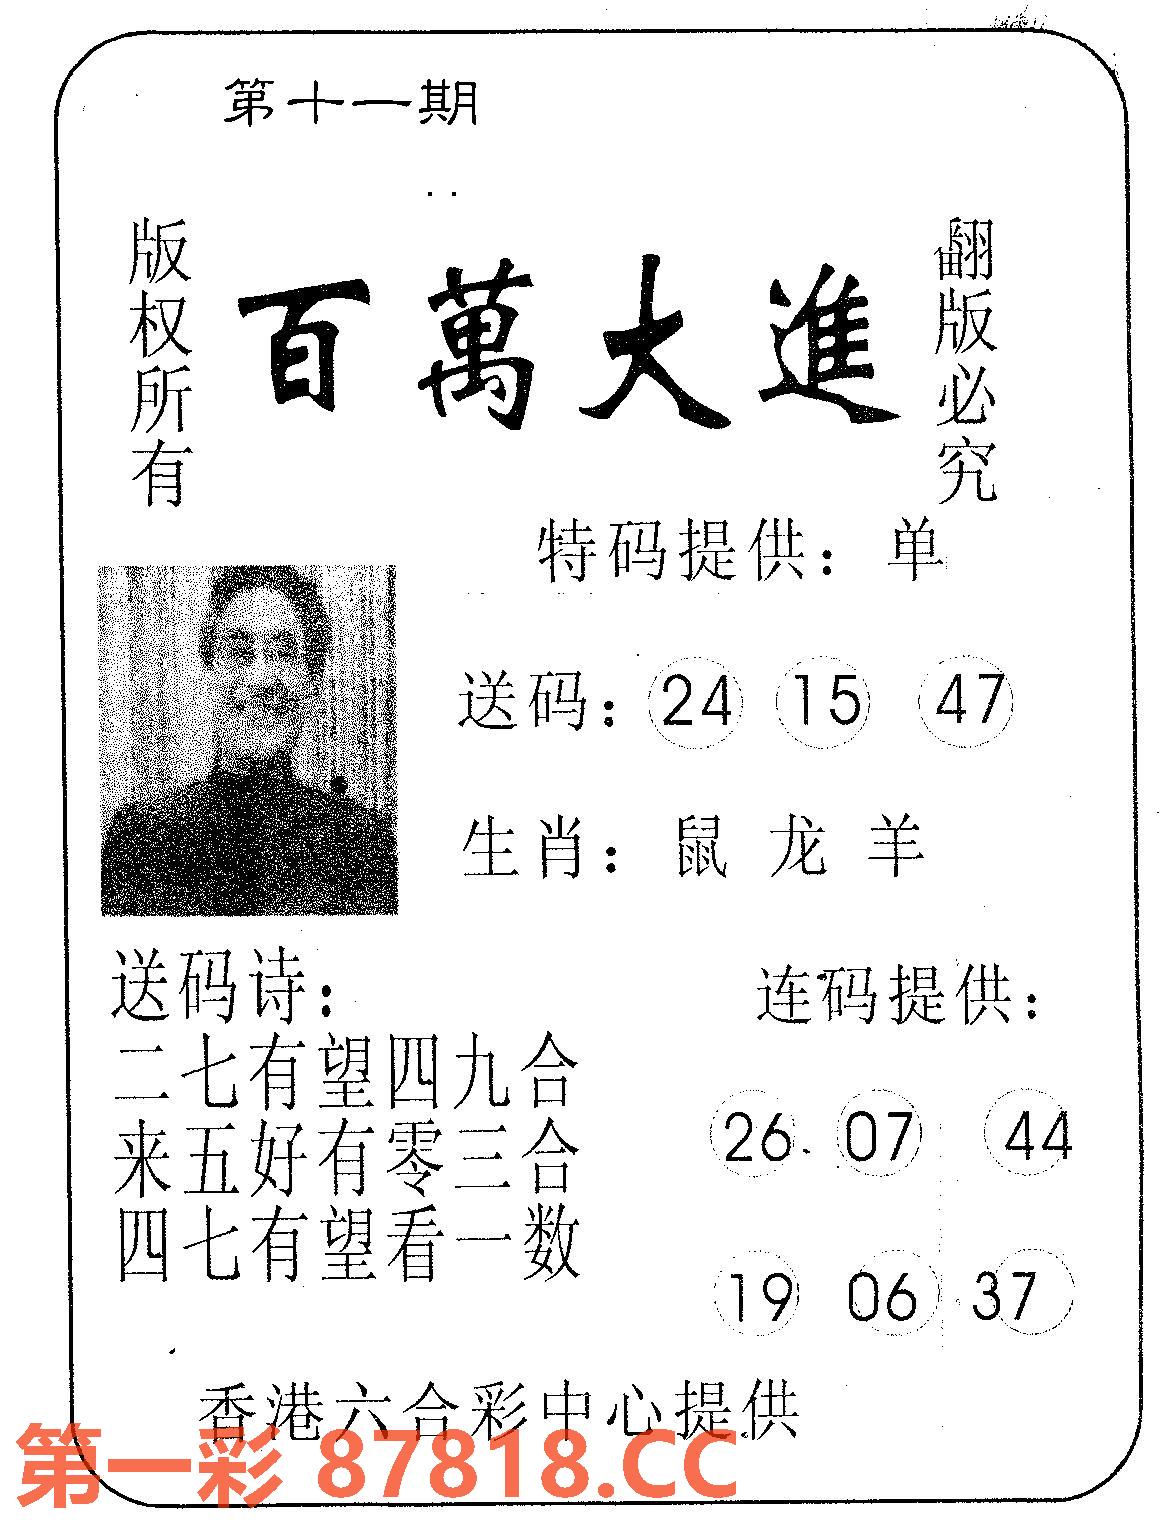 第十一期
版权所有
百萬大進
翻版必究
特码提供：单
送码：24 15 47
生肖：鼠 龙 羊
送码诗：
二七有望四九合
来五好有零三合
四七有望看一数
连码提供：
26 07 44
19 06 37
香港六合彩中心提供
第一彩 87818.CC